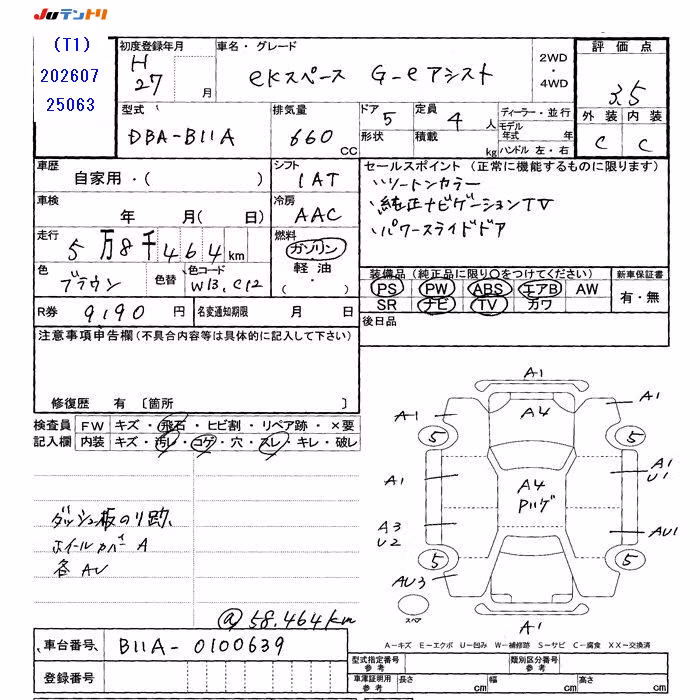 Juテントリ
(T1)
202607
25063
初度登録年月
H
27 月
車名・グレード
eKスペース G-eアシスト
2WD
・
4WD
評価点
3.5
外装 内装
C C
型式
DBA-B11A
排気量
660 CC
ドア 5
形状
定員 4 人
積載 kg
ディーラー・並行
モデル年式 年
ハンドル 左・右
車歴
自家用・( )
シフト
IAT
車検
年 月( 日)
冷房
AAC
走行
5万8千464km
燃料
ガソリン
軽油
・
( )
色
ブラウン
色替
色コード
W13.C12
R券 9190 円
名変通知期限 月 日
セールスポイント(正常に機能するものに限ります)
ツートンカラー
純正ナビゲーションTV
パワースライドドア
装備品(純正品に限り○をつけてください)
PS PW ABS エアB AW
SR ナビ TV カワ
新車保証書
有・無
後日品
注意事項申告欄(不具合内容等は具体的に記入して下さい)
修復歴 有 〔箇所 〕
検査員記入欄
FW キズ・飛石・ヒビ割・リペア跡・×要
内装 キズ・汚レ・コゲ・穴・スレ・キレ・破レ
ダッシュ板のり跡、
ホイールカバー A
各AU
@58.464km
A1
A1 A4 A1
5 5
A1 A4 A1
Pハゲ U1
A3 AU1
U2
5 5
AU3
スペア
A1
A-キズ E-エクボ U-凹み W-補修跡 S-サビ C-腐食 XX-交換済
車台番号 B11A-0100639
登録番号
型式指定番号
参考
類別区分番号
参考
車庫証明用
参考
長さ cm 幅 cm 高さ cm